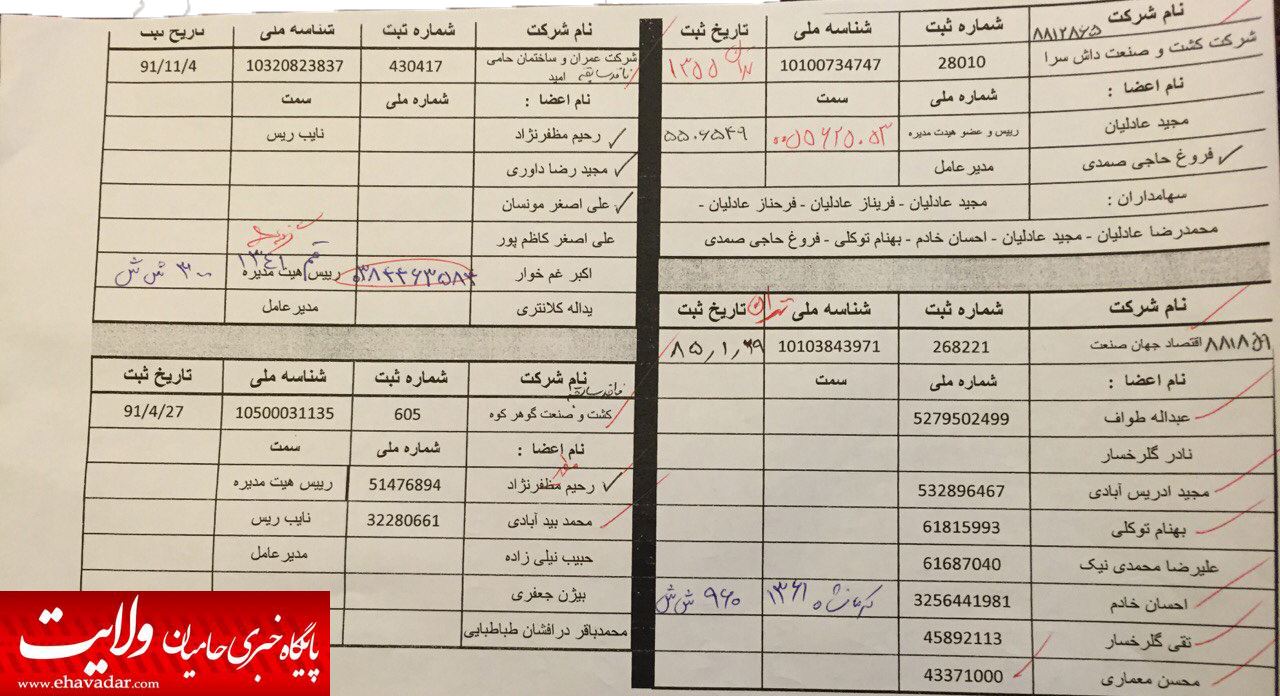 نام شرکت شماره ثبت شناسه ملی تاریخ ثبت
۸۸۱۲۸۶۵
شرکت کشت و صنعت داش سرا 28010 10100734747 ۱۳۵۵
نام اعضا : شماره ملی سمت
مجید عادلیان رییس و عضو هیدت مدیره ۵۵۰۶۵۴۹
فروغ حاجی صمدی مدیر عامل
سهامداران : مجید عادلیان - فریناز عادلیان - فرحناز عادلیان -
محمدرضا عادلیان - مجید عادلیان - احسان خادم - بهنام توکلی - فروغ حاجی صمدی
نام شرکت شماره ثبت شناسه ملی تهران تاریخ ثبت
اقتصاد جهان صنعت 268221 10103843971 ۸۵٫۱٫۲۹
نام اعضا : شماره ملی سمت
عبداله طواف 5279502499
نادر گلرخسار
مجید ادریس آبادی 532896467
بهنام توکلی 61815993
علیرضا محمدی نیک 61687040
احسان خادم 3256441981 کرمانشاه ۱۳۶۱ ۹۶۰ ش ش
تقی گلرخسار 45892113
محسن معماری 43371000
نام شرکت شماره ثبت شناسه ملی تاریخ ثبت
شرکت عمران و ساختمان حامی 430417 10320823837 91/11/4
امید فاقد سابقه
نام اعضا : شماره ملی سمت
رحیم مظفرنژاد نایب ریس
مجید رضا داوری
علی اصغر مونسان
علی اصغر کاظم پور
قم ۱۳۴۱
اکبر غم خوار ۰۳۸۴۴۶۳۵۸۴ رییس هیت مدیره ۳۰۰ ش ش
یداله کلانتری مدیر عامل
نام شرکت شماره ثبت شناسه ملی تاریخ ثبت
فاقد سابقه
کشت و صنعت گوهر کوه 605 10500031135 91/4/27
نام اعضا : شماره ملی سمت
رحیم مظفرنژاد 51476894 رییس هیت مدیره
محمد بید آبادی 32280661 نایب ریس
حبیب نیلی زاده مدیر عامل
بیژن جعفری
محمدباقر درافشان طباطبایی
پایگاه خبری حامیان ولایت
www.ehavadar.com